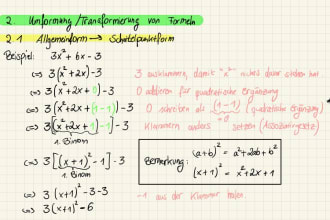 2. Umformung / Transformierung von Formeln
2.1 Allgemeinform → Scheitelpunktform
Beispiel: 3x² + 6x - 3
⇔ 3(x² + 2x) - 3 3 ausklammern, damit "x²" nichts davor stehen hat.
⇔ 3(x² + 2x + 0) - 3 0 addieren für quadratische Ergänzung
⇔ 3(x² + 2x + 1 - 1) - 3 0 schreiben als (1 - 1) (quadratische Ergänzung)
= 0
⇔ 3[(x² + 2x + 1) - 1] - 3 Klammern anders setzen (Assoziativgesetz)
1. Binom
⇔ 3[(x + 1)² - 1] - 3
1. Binom
Bemerkung: (a+b)² = a² + 2ab + b²
(x + 1)² = x² + 2x + 1
⇔ 3(x + 1)² - 3 - 3 -1 aus der Klammer holen.
⇔ 3(x + 1)² - 6